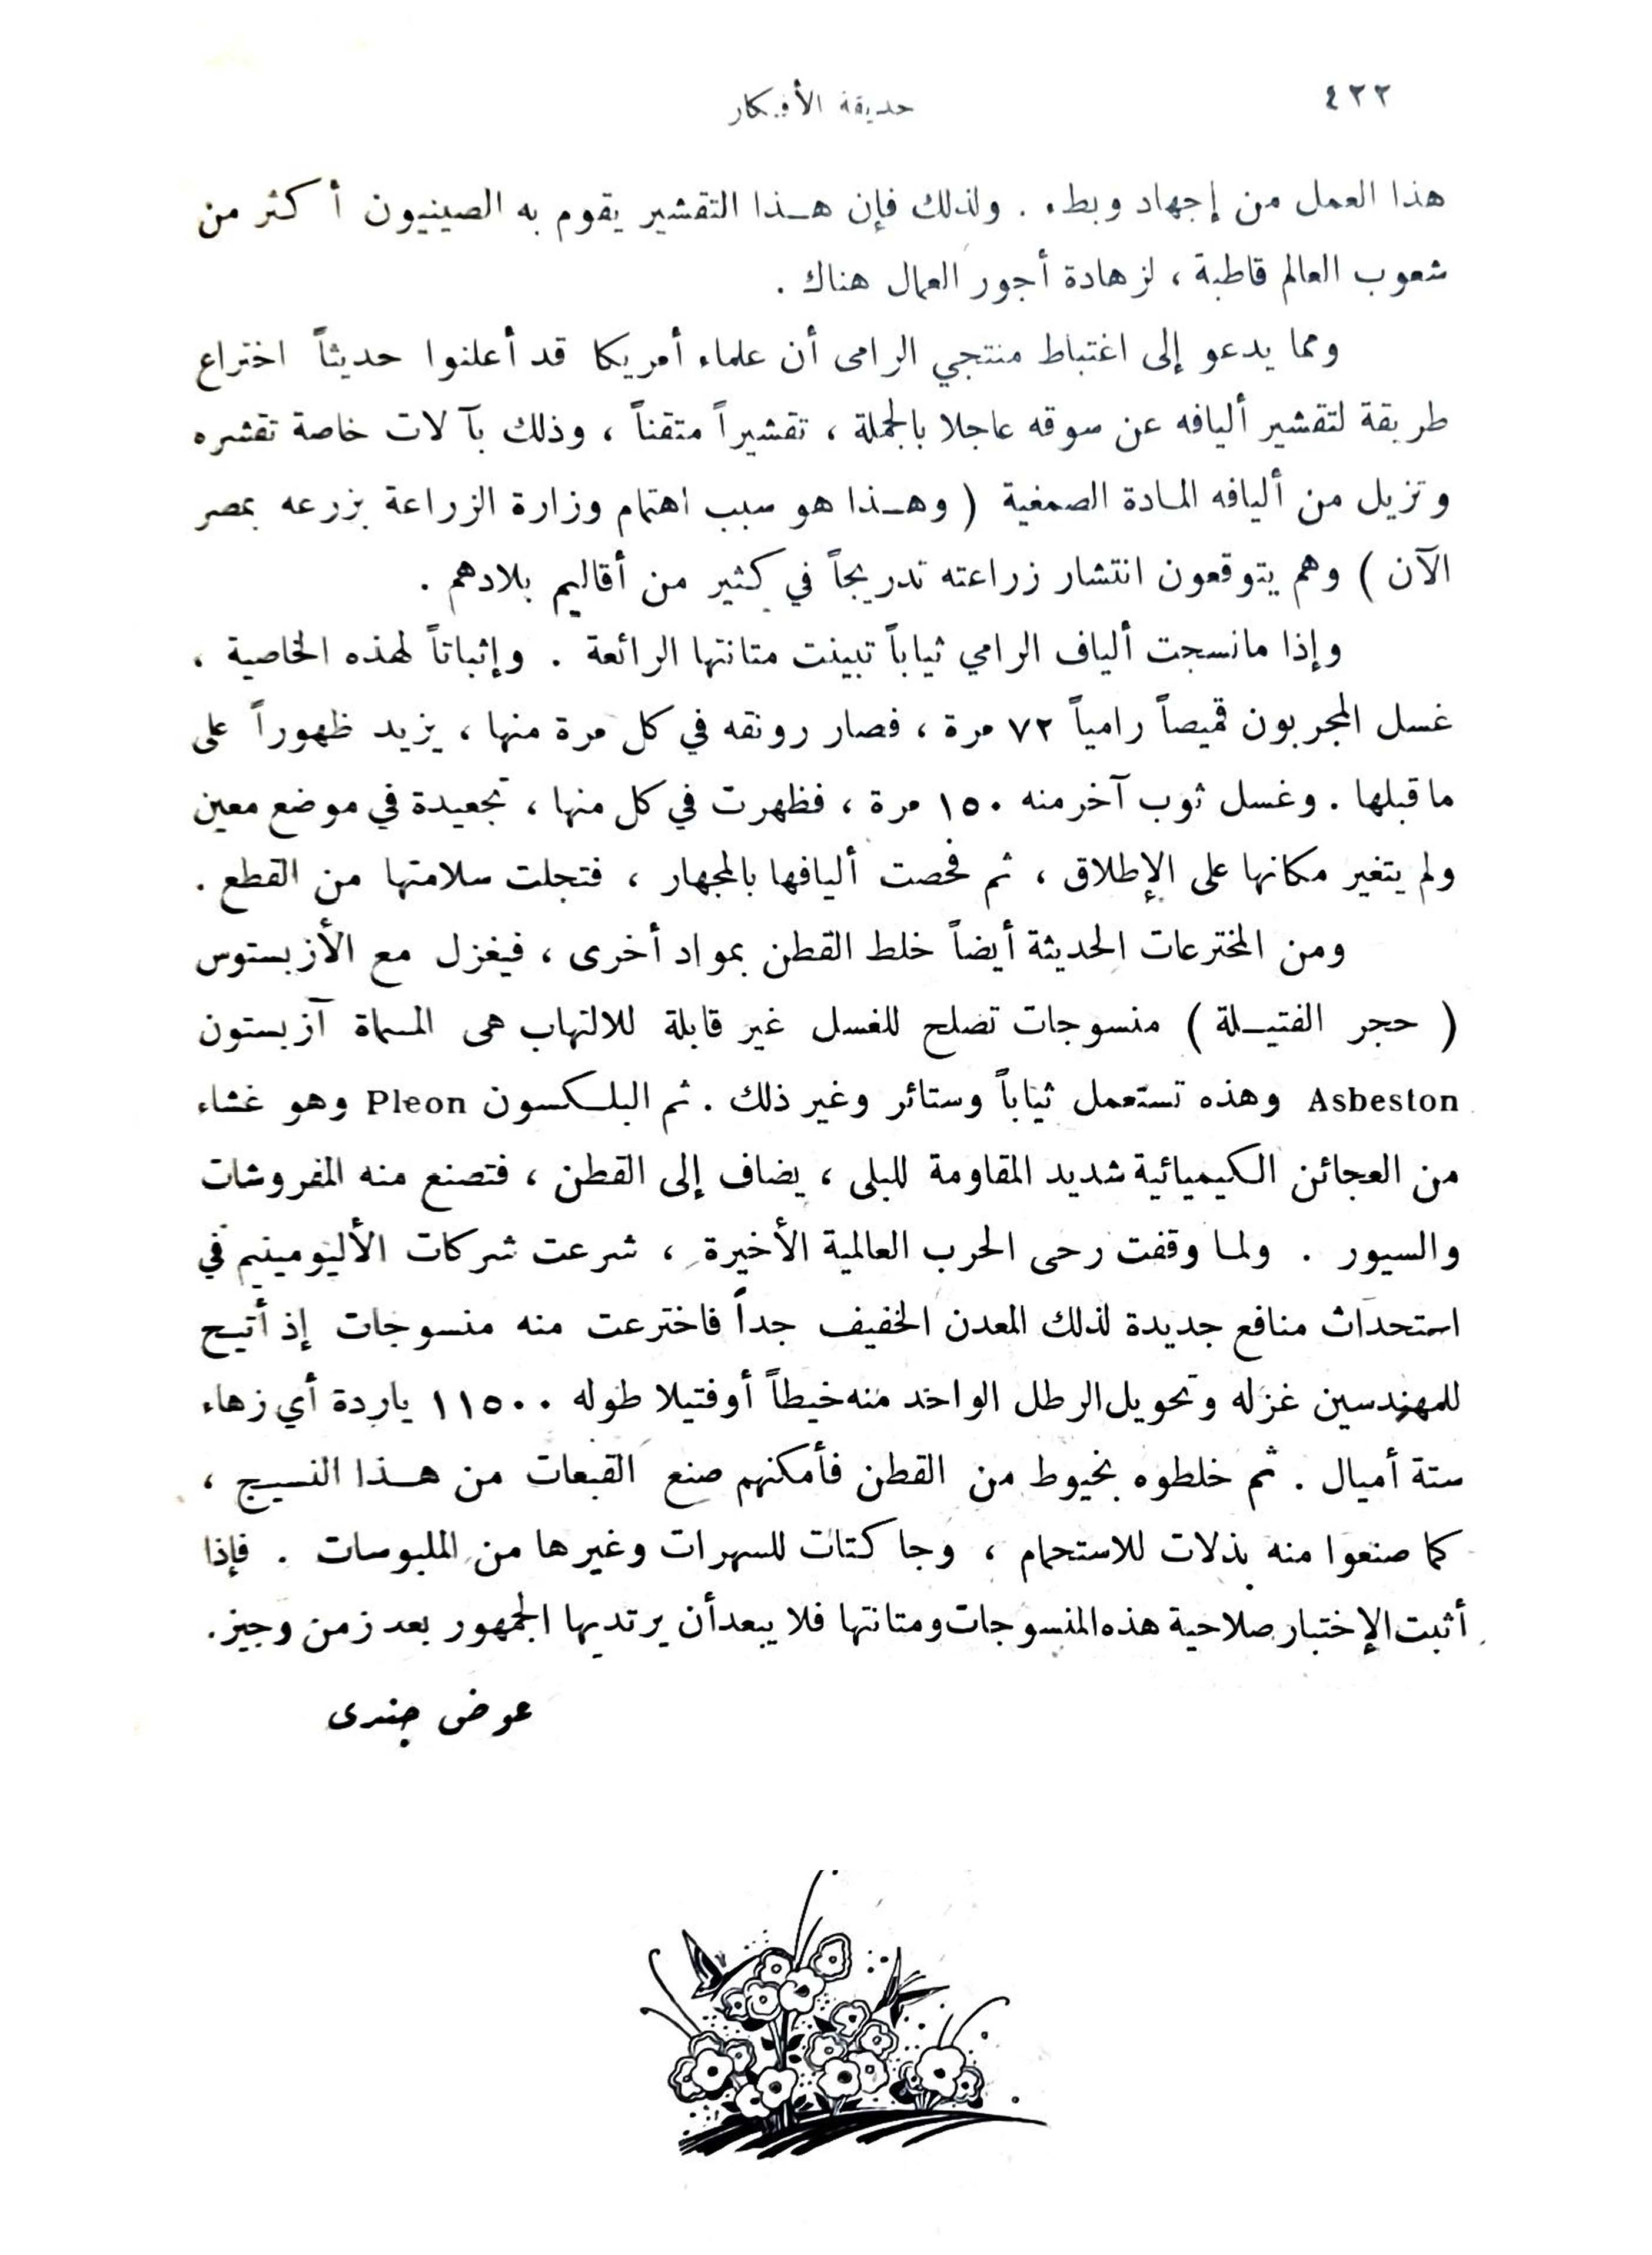 ٤٢٢
حديقة الأفكار
هذا العمل من إجهاد وبطء . ولذلك فإن هـذا التقشير يقوم به الصينيون أكثر من
شعوب العالم قاطبة ، لزهادة أجور العمال هناك .
ومما يدعو إلى اغتباط منتجي الرامى أن علماء أمريكا قد أعلنوا حديثاً اختراع
طريقة لتقشير أليافه عن سوقه عاجلا بالجملة ، تقشيراً متقناً ، وذلك بآلات خاصة تقشره
وتزيل من أليافه المادة الصمغية ( وهـذا هو سبب اهتمام وزارة الزراعة بزرعه بمصر
الآن ) وهم يتوقعون انتشار زراعته تدريجاً في كثير من أقاليم بلادهم .
وإذا مانسجت ألياف الرامي ثياباً تبينت متانتها الرائعة . وإثباتاً لهذه الخاصية ،
غسل المجربون قميصاً رامياً ٧٢ مرة ، فصار رونقه في كل مرة منها ، يزيد ظهوراً على
ماقبلها . وغسل ثوب آخر منه ١٥٠ مرة ، فظهرت في كل منها ، تجعيدة في موضع معين
ولم يتغير مكانها على الإطلاق ، ثم فحصت أليافها بالمجهار ، فتجلت سلامتها من القطع .
ومن المخترعات الحديثة أيضاً خلط القطن بمواد أخرى ، فيغزل مع الأزبستوس
( حجر الفتيـلة ) منسوجات تصلح للغسل غير قابلة للالتهاب هى المسماة آزبستون
Asbeston وهذه تستعمل ثياباً وستائر وغير ذلك . ثم البلـكسون Pleon وهو غشاء
من العجائن الكيميائية شديد المقاومة للبلى ، يضاف إلى القطن ، فتصنع منه المفروشات
والسيور . ولما وقفت رحى الحرب العالمية الأخيرة ، شرعت شركات الأليومينيم في
استحداث منافع جديدة لذلك المعدن الخفيف جداً فاخترعت منه منسوجات إذ أتيح
للمهندسين غزله وتحويل الرطل الواحد منه خيطاً أو فتيلا طوله ١١٥٠٠ ياردة أي زهاء
ستة أميال . ثم خلطوه بخيوط من القطن فأمكنهم صنع القبعات من هـذا النسيج ،
كما صنعوا منه بذلات للاستحمام ، وجاكتات للسهرات وغيرها من الملبوسات . فإذا
أثبت الإختبار صلاحية هذه المنسوجات ومتانتها فلا يبعد أن يرتديها الجمهور بعد زمن وجيز .
عوض جندى